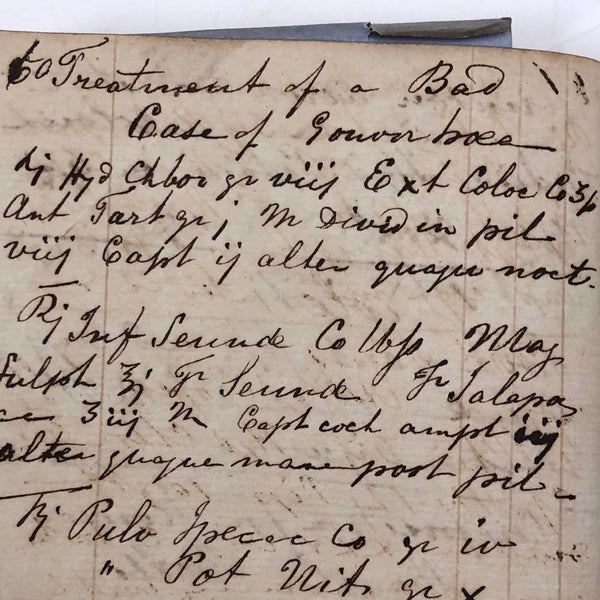 60 Treatment of a Bad
Case of Gonnorhoea
Rj Hyd Chlor gr viij Ext Coloc Co ʒß
Ant Tart gr j M Divid in pil
viij Capt ij alter quaque noct.
Rj Inf Sennae Co lbß Mag
Sulph ℥j Tr Sennae Tr Jalapae
aa ʒ iij M Capt coch ampt iij
alter quaque mane post pil
Rj Pulv Ipecac Co gr iv
" Pot Nit gr x